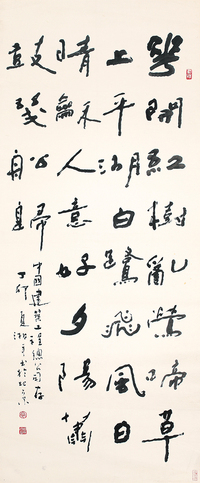 花開紅樹亂鶯啼草
上平湖白鷺飛風日
晴龢人意好夕陽簫
鼓幾船歸
中國建築工程總公司存
丁卯夏書於北京